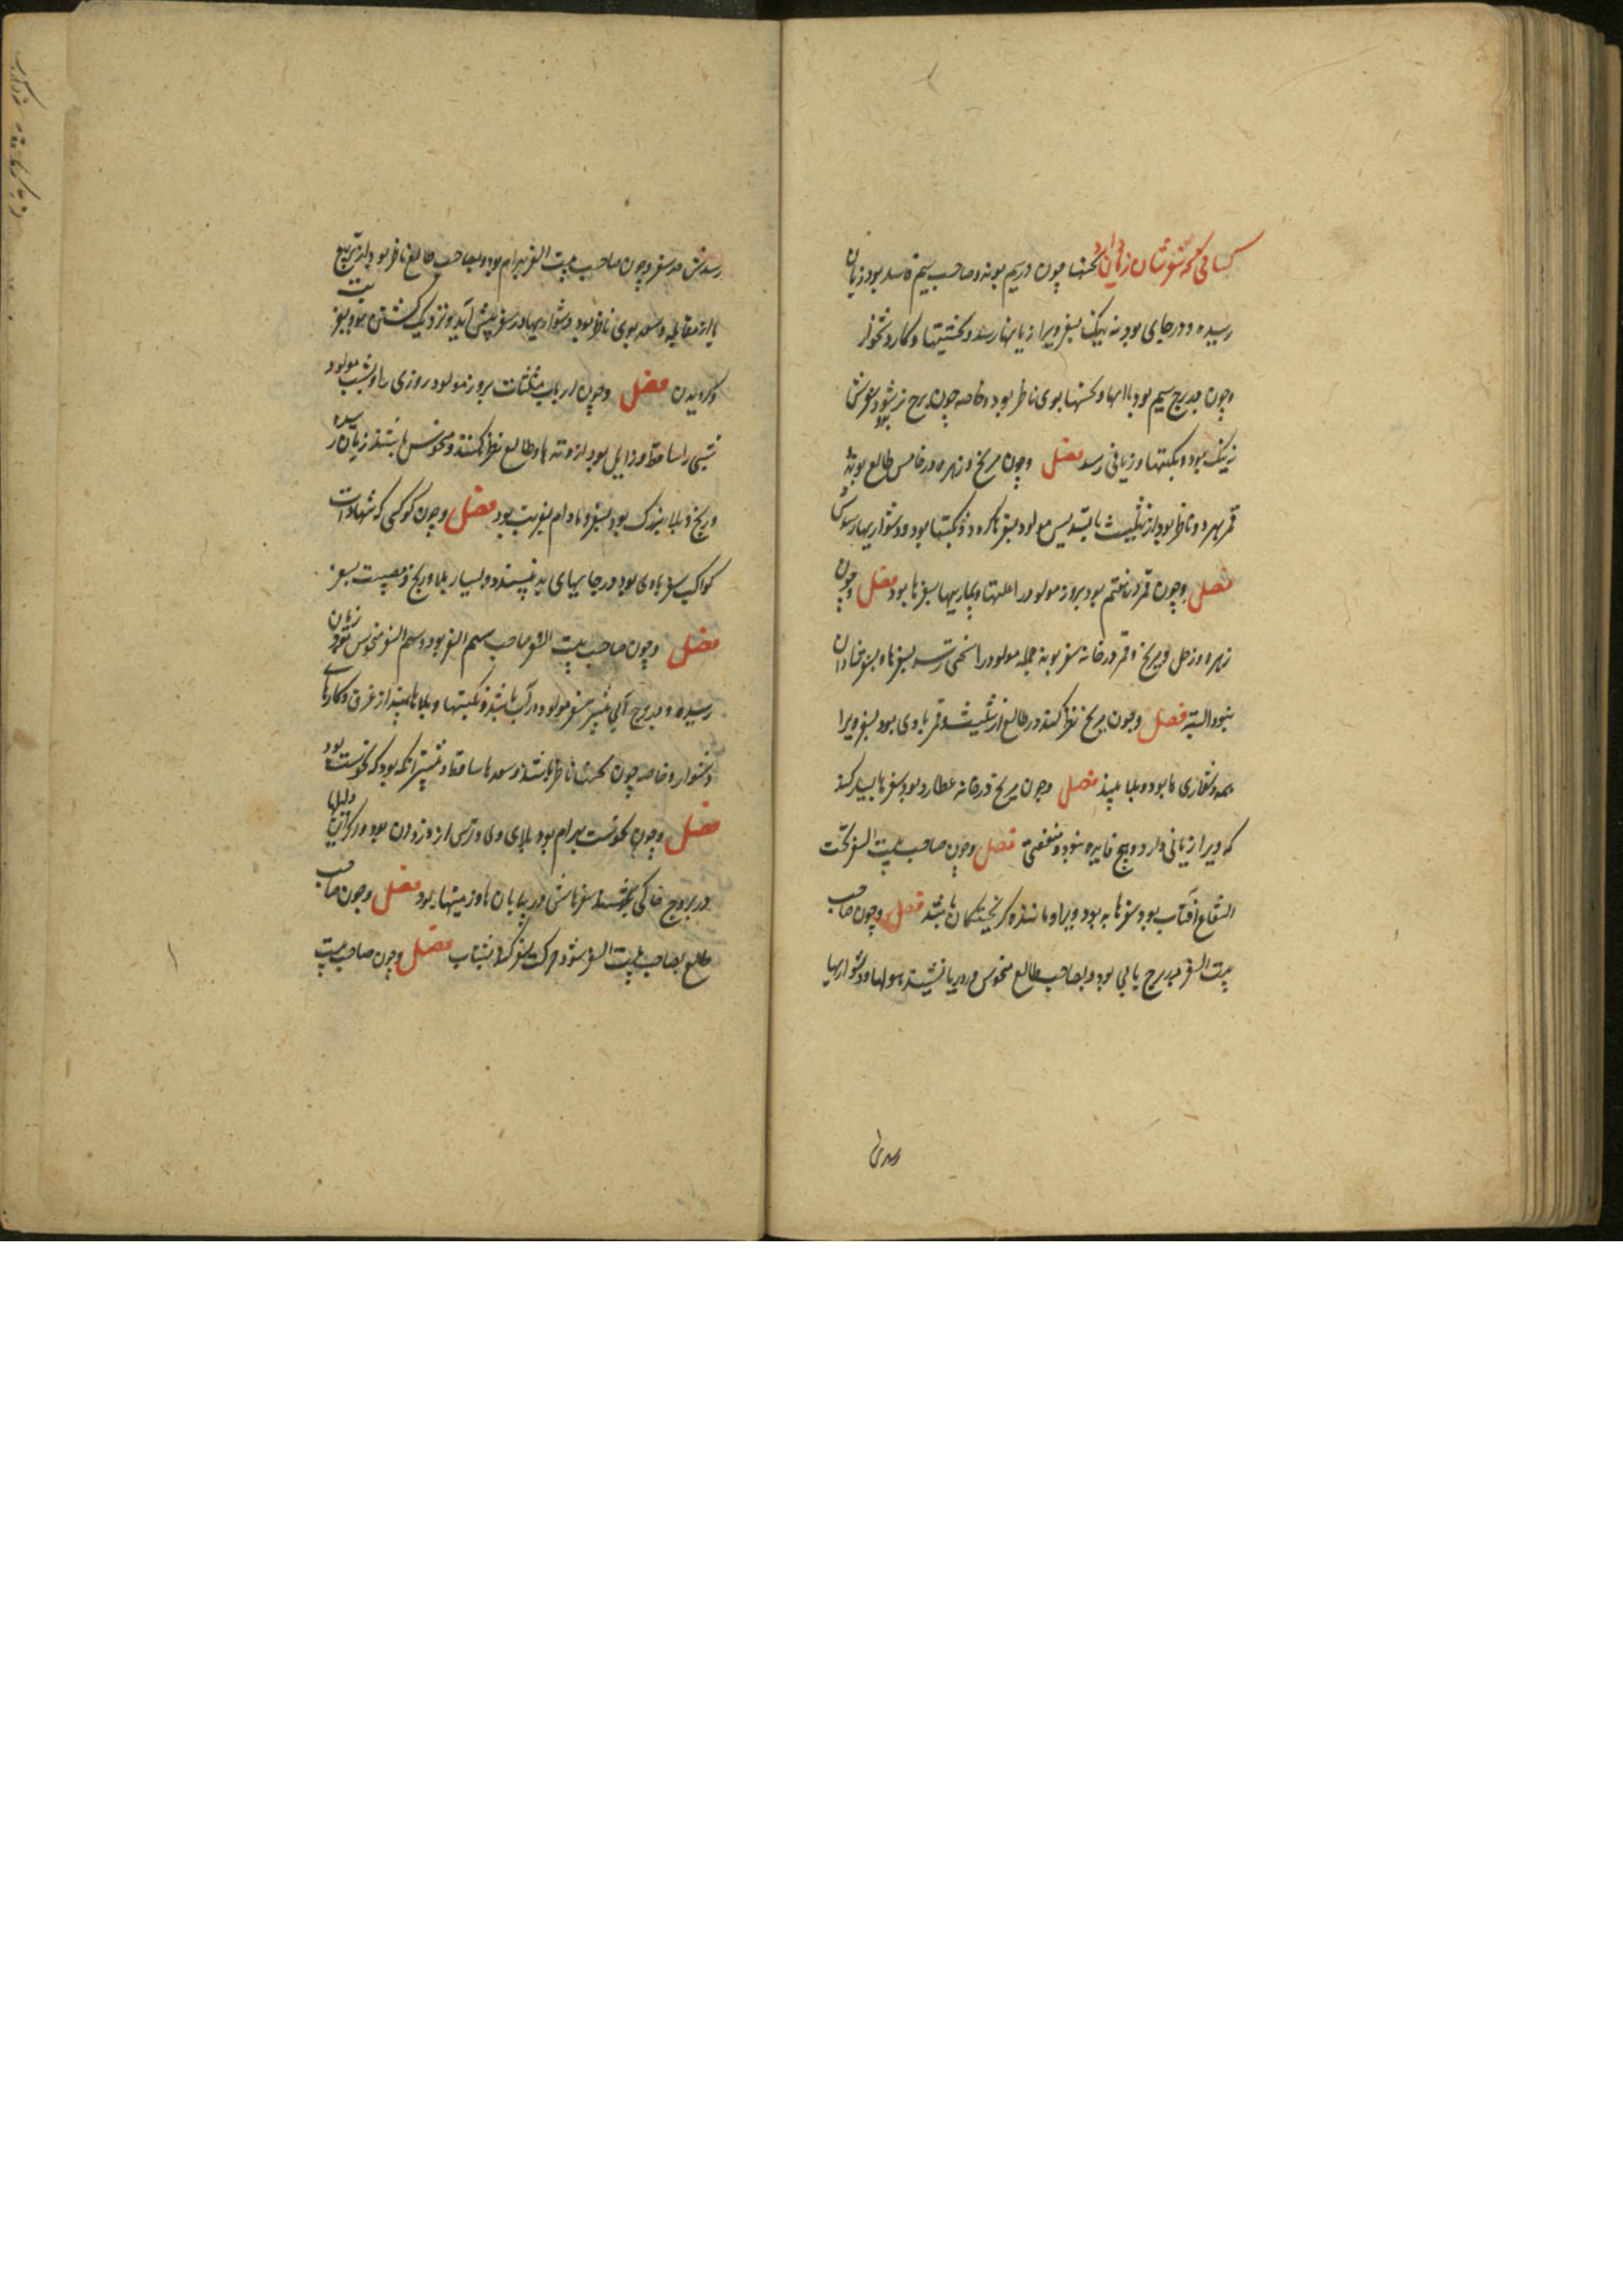 کسانی که سفرشان زیان دارد نحسها چون در نهم بوند و صاحب نهم فاسد بود زیان
رسیده و در جای بود نه نیک بسفر ویرا زیانها رسد و نکبتها و کار دشخوار
وچون ببرج نهم بود با اینها و نحسها بوی ناظر بود و خاصه چون برج نر بود سفرش
نه نیک بود و نکبتها و زیانی رسد فصل وچون مریخ و زهره در خامس طالع بوند
قمر بهر دو ناظر بود از تثلیث یا تسدیس مولود بسفرها کرده و نکبتها بود و دشواریها رسدش
فصل وچون قمر در هفتم بود بروز مولود را علتها و بیماریها بسفرها بود فصل وچون
زهره و زحل و مریخ و قمر در خانه سفر بوند جمله مولود را سختی رسد بسفرها و بسفر شادان
نبود البته فصل وچون مریخ نظر کند در طالع از تثلیث و قمر با وی بود بسفر ویرا
همه دشواری ها بود و بلا بیند فصل وچون مریخ در خانه عطارد بود سفرها بسیار کند
که ویرا زیانی دارد و هیچ فایده نبود و منفعتی فصل وچون صاحب بیت السفر تحت
الشعاع آفتاب بود سفرها به بود ویرا و مانند گریختگان باشد فصل وچون صاحب
بیت السفر ببرج یابی بود و بصاحب طالع منحوس در دریا نشیند هولها و دشواریها
رسدش
رسدش در سفر وچون صاحب بیت السفر بهرام بود و بصاحب طالع ناظر بود از تربیع
یا از مقابله و سعد بوی ناظر بود دشواریها در سفر پیش آید و نزدیک کشتن بود بسفر
و گرویدن فصل وچون ارباب مثلثات بروز مولود روزی را و بشب مولود
شبی را ساقط و زایل بود از وتدها و طالع نظر نکنند و منحوس باشند زیان رسیده
و رنج و بلا بزرگ بود بسفر و مادام بغربت بود فصل وچون کوکبی که شهادات
کواکب سفر با وی بود در جایهای بد نپسندد و بسیار بلا و رنج و مصیبت بسفر
فصل وچون صاحب بیت السفر صاحب سهم السفر بود و سهم السفر منحوس بود زیان
رسیده و ببرج آبی بیشتر سفر مولود در آب باشد و نکبتها و بلاها بیند از غرق و کارهای
دشوار و خاصه چون نحسها ناظر باشند و سعدها ساقط و بیشتر آنکه بود که نحوست بود
فصل وچون نحوست بهرام بود بلای وی و ترس از دزدان بود و دیگر آن دلیلها
در بروج خاکی باشند سفرهاش در بیابان ها و زمینها بود فصل وچون صاحب
طالع بصاحب بیت السفر شود حرکت سفر کند بشتاب فصل وچون صاحب بیت